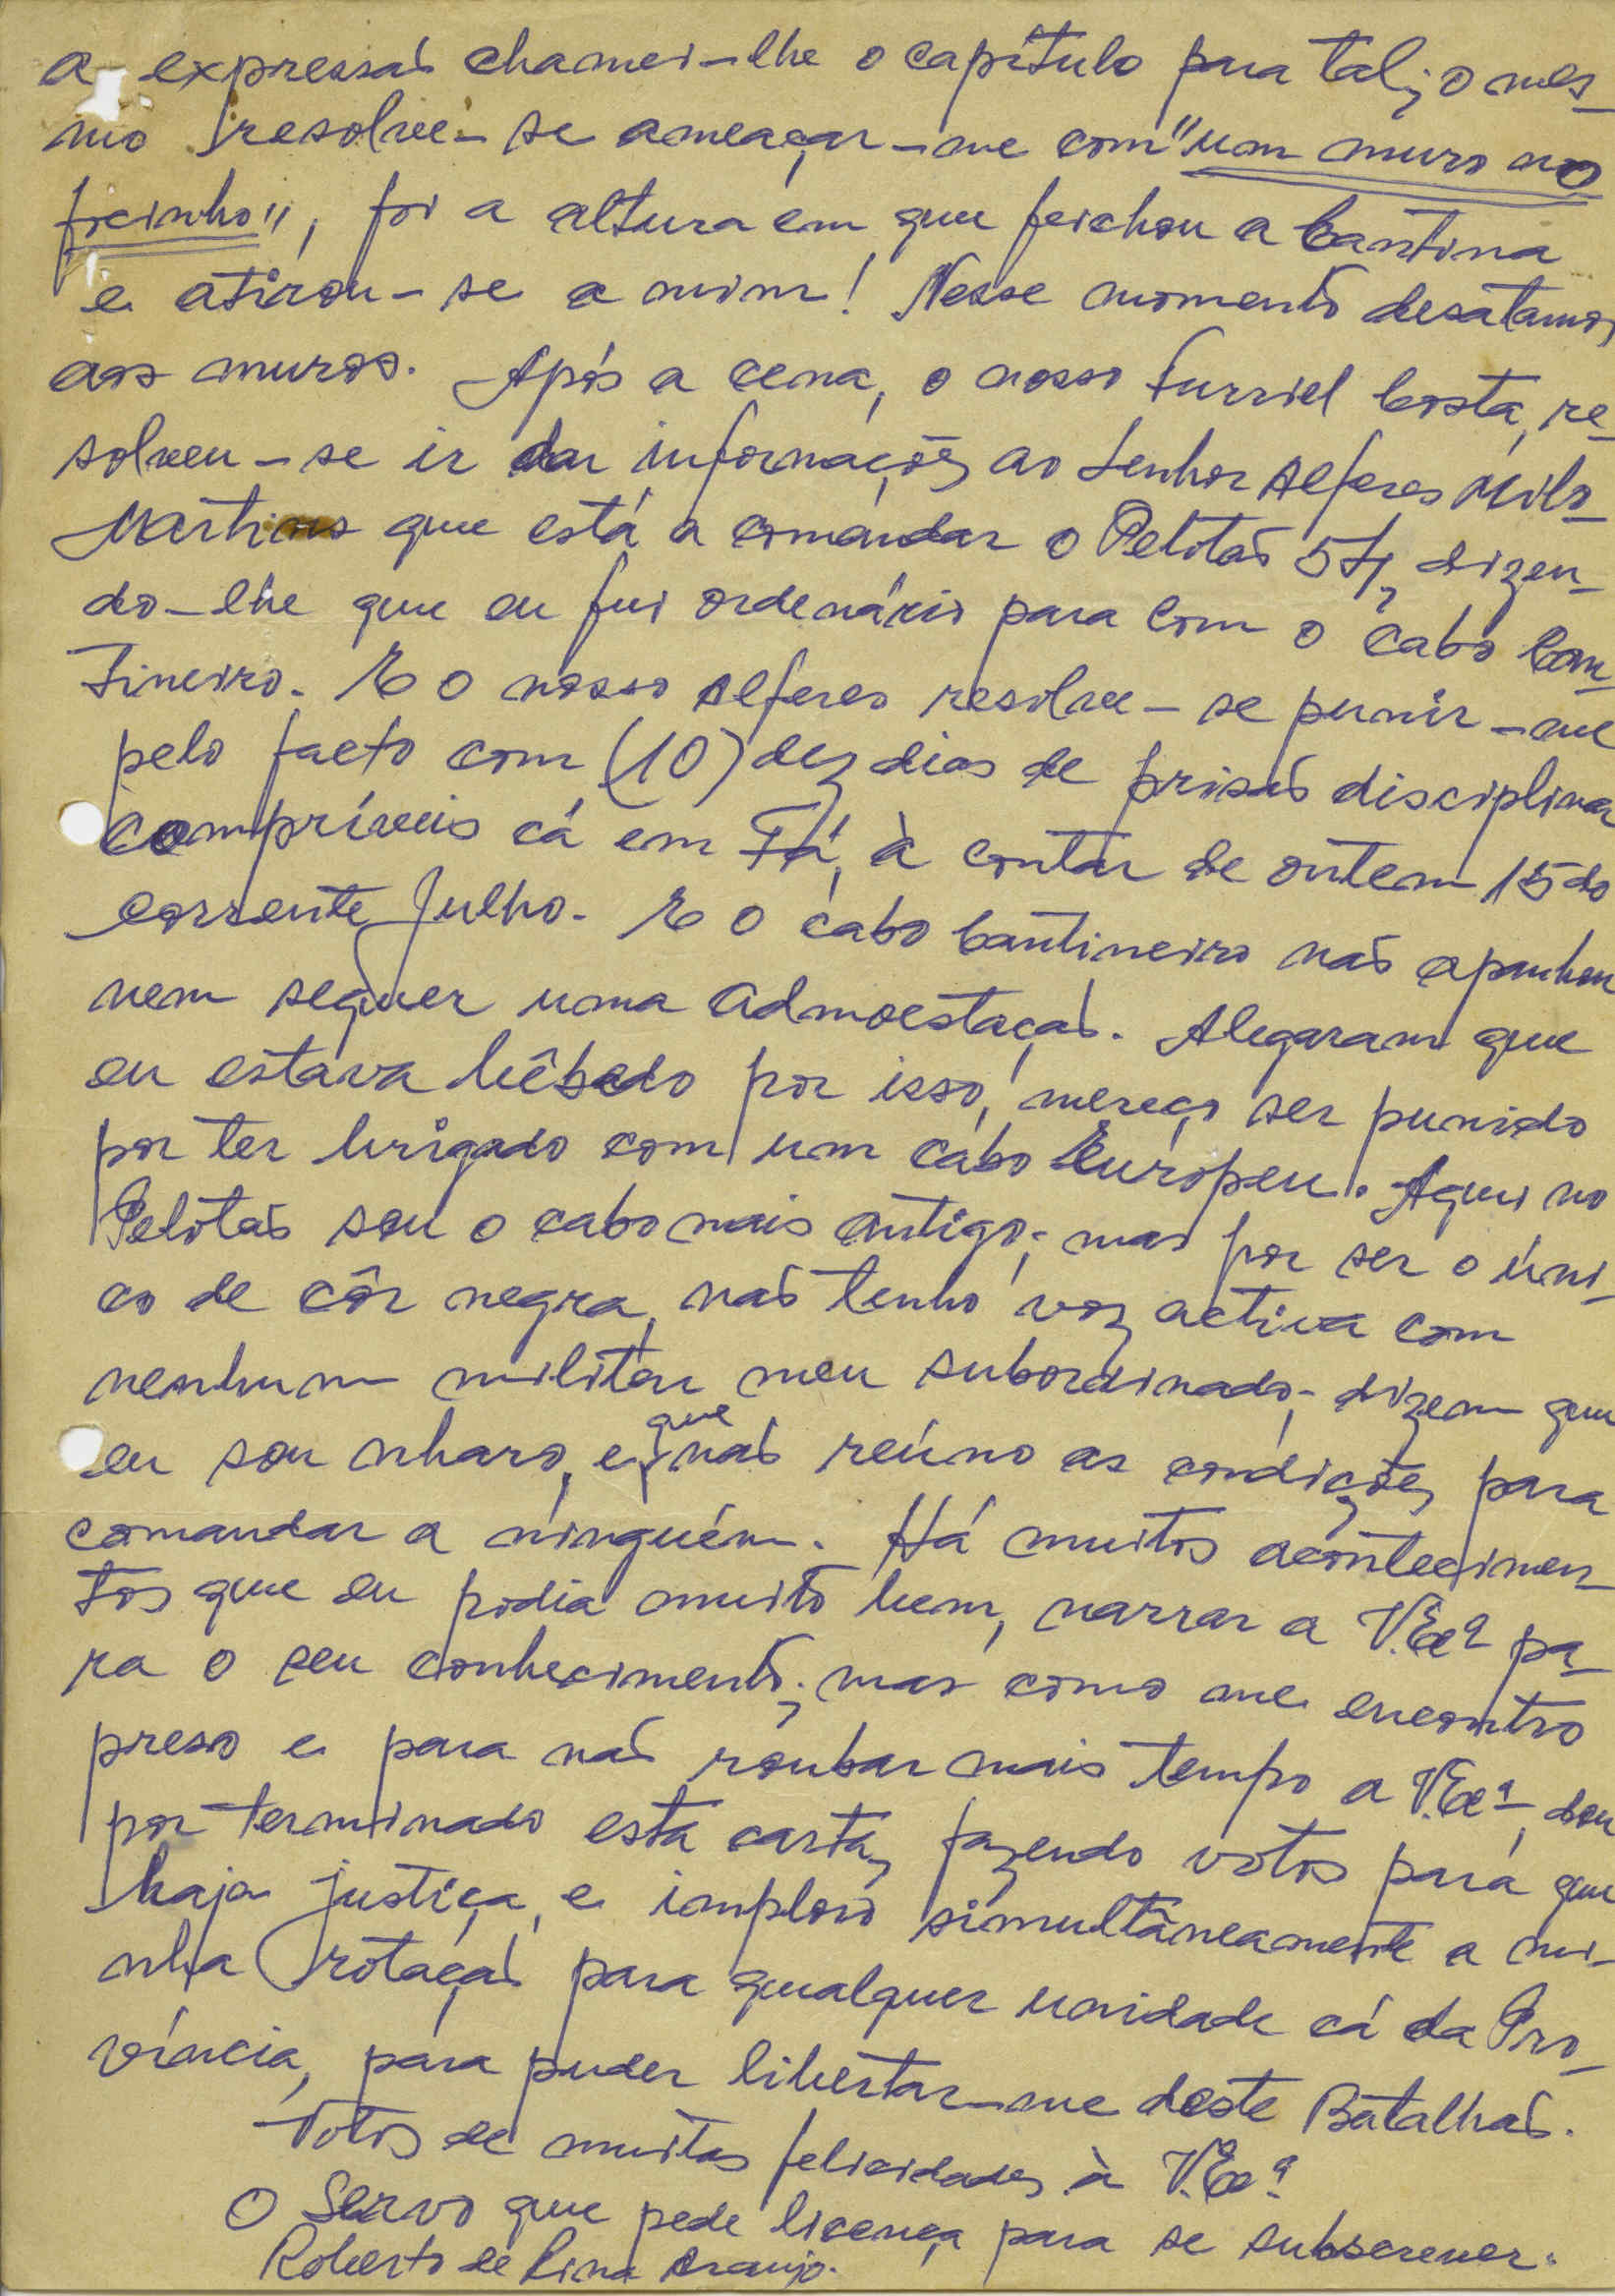 a expressão chamei-lhe o capítulo para tal; o mes-
mo resolve-se ameaçar-me com "um muro no
focinho", foi a altura em que feichou a Cantina
e atirou-se a mim! Nesse momento desatamos
aos muros. Após a cena, o nosso Furriel Costa, re-
solveu-se ir dar informações ao Senhor Alferes Milo
Martins que está a comandar o Pelotão 54, dizen-
do-lhe que eu fui ordenário para com o cabo Can-
tineiro. E o nosso alferes resolve-se punir-me
pelo facto com (10) dez dias de prisão disciplinar
compríveis cá em Fá, à contar de ontem 15 do
corrente Julho. E o cabo Cantineiro não apanhou
nem sequer uma admoestação. Alegaram que
eu estava bêbedo por isso, mereço ser punido
por ter brigado com um cabo Európeu. Aqui no
Pelotão sou o cabo mais antigo; mas por ser o úni-
co de côr negra, não tenho voz activa com
nenhum militar meu subordinado; dizem que
eu sou nharo, e que não reúno as condições para
comandar a ninguém. Há muitos acontecimen-
tos que eu podia muito bem, narrar a V.Exª pa-
ra o seu conhecimento; mas como me encontro
preso e para não roubar mais tempo a V.Exª, dou
por terminado esta carta, fazendo votos para que
haja justiça, e imploro simultâneamente a mi-
nha rotação para qualquer unidade cá da Pro-
víncia, para puder libertar-me deste Batalhão.
Votos de muitas felicidades à V.Exª
O Servo que pede licença para se subscrever.
Roberto de Lima Araujo.